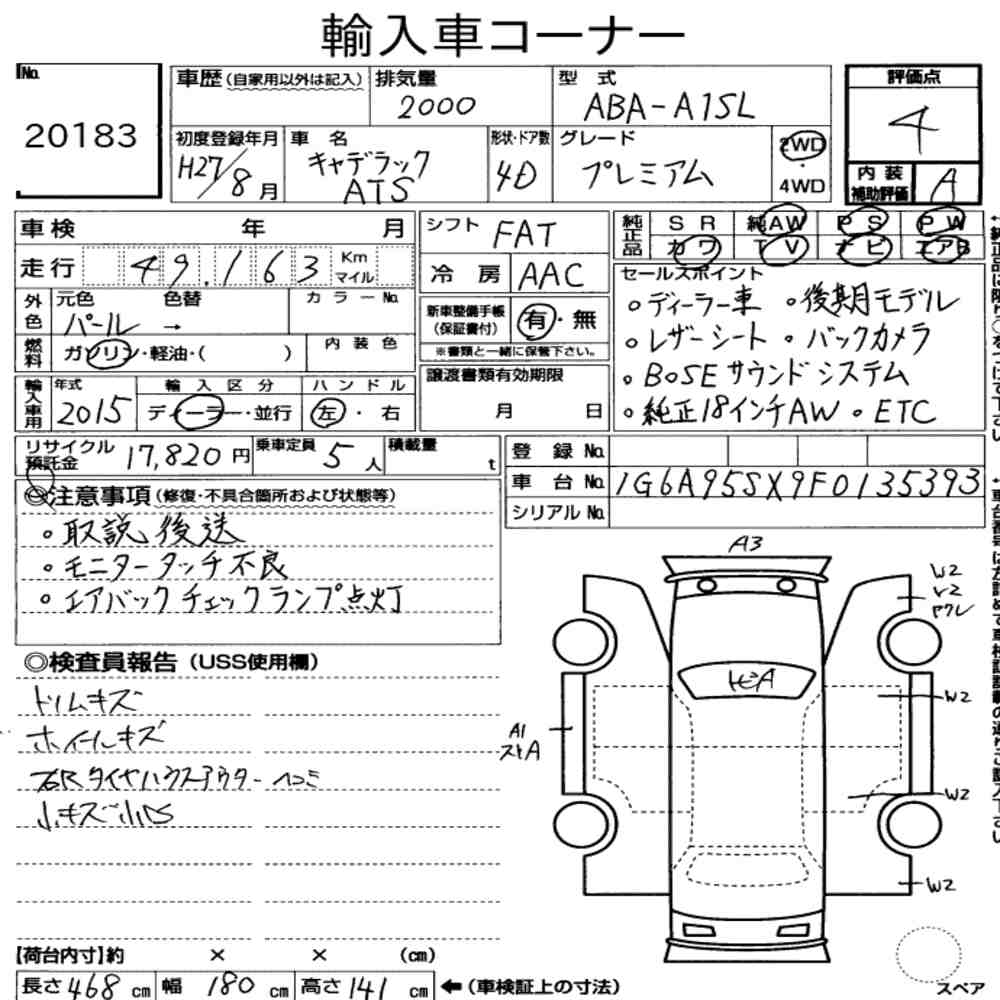 輸入車コーナー
No.
20183
車歴(自家用以外は記入)
排気量
2000
型 式
ABA-A1SL
評価点
4
初度登録年月
H27/8月
車 名
キャデラック
ATS
形状・ドア数
4D
グレード
プレミアム
2WD
・
4WD
内 装
補助評価
A
車検 年 月
走行 49,163 Km マイル
外色
元色 色替 カラーNo.
パール →
燃料
ガソリン・軽油・( )
内装色
輸入車用
年式
2015
輸入区分
ディーラー・並行
ハンドル
左・右
シフト FAT
冷 房 AAC
新車整備手帳
(保証書付)
有・無
※書類と一緒に保管下さい。
譲渡書類有効期限
月 日
純正品
SR 純AW PS PW
カワ TV ナビ エアB
セールスポイント
○ディーラー車 ○後期モデル
○レザーシート ・バックカメラ
○BOSEサウンドシステム
○純正18インチAW ○ETC
リサイクル
預託金
17,820円
乗車定員
5人
積載量
t
登 録 No.
車 台 No. 1G6A95SX9F0135393
シリアルNo.
◎注意事項(修復・不具合箇所および状態等)
・取説後送
・モニタータッチ不良
・エアバックチェックランプ点灯
◎検査員報告(USS使用欄)
ドリムキズ
ホイールキズ
右Rタイヤハウスアウターヘコミ
小キズ小凹
A3
W2
Y2
ヤクレ
トビA
W2
A1
ストA
W2
W2
【荷台内寸】約 × × (cm)
長さ468cm 幅180cm 高さ141cm ←(車検証上の寸法)
スペア